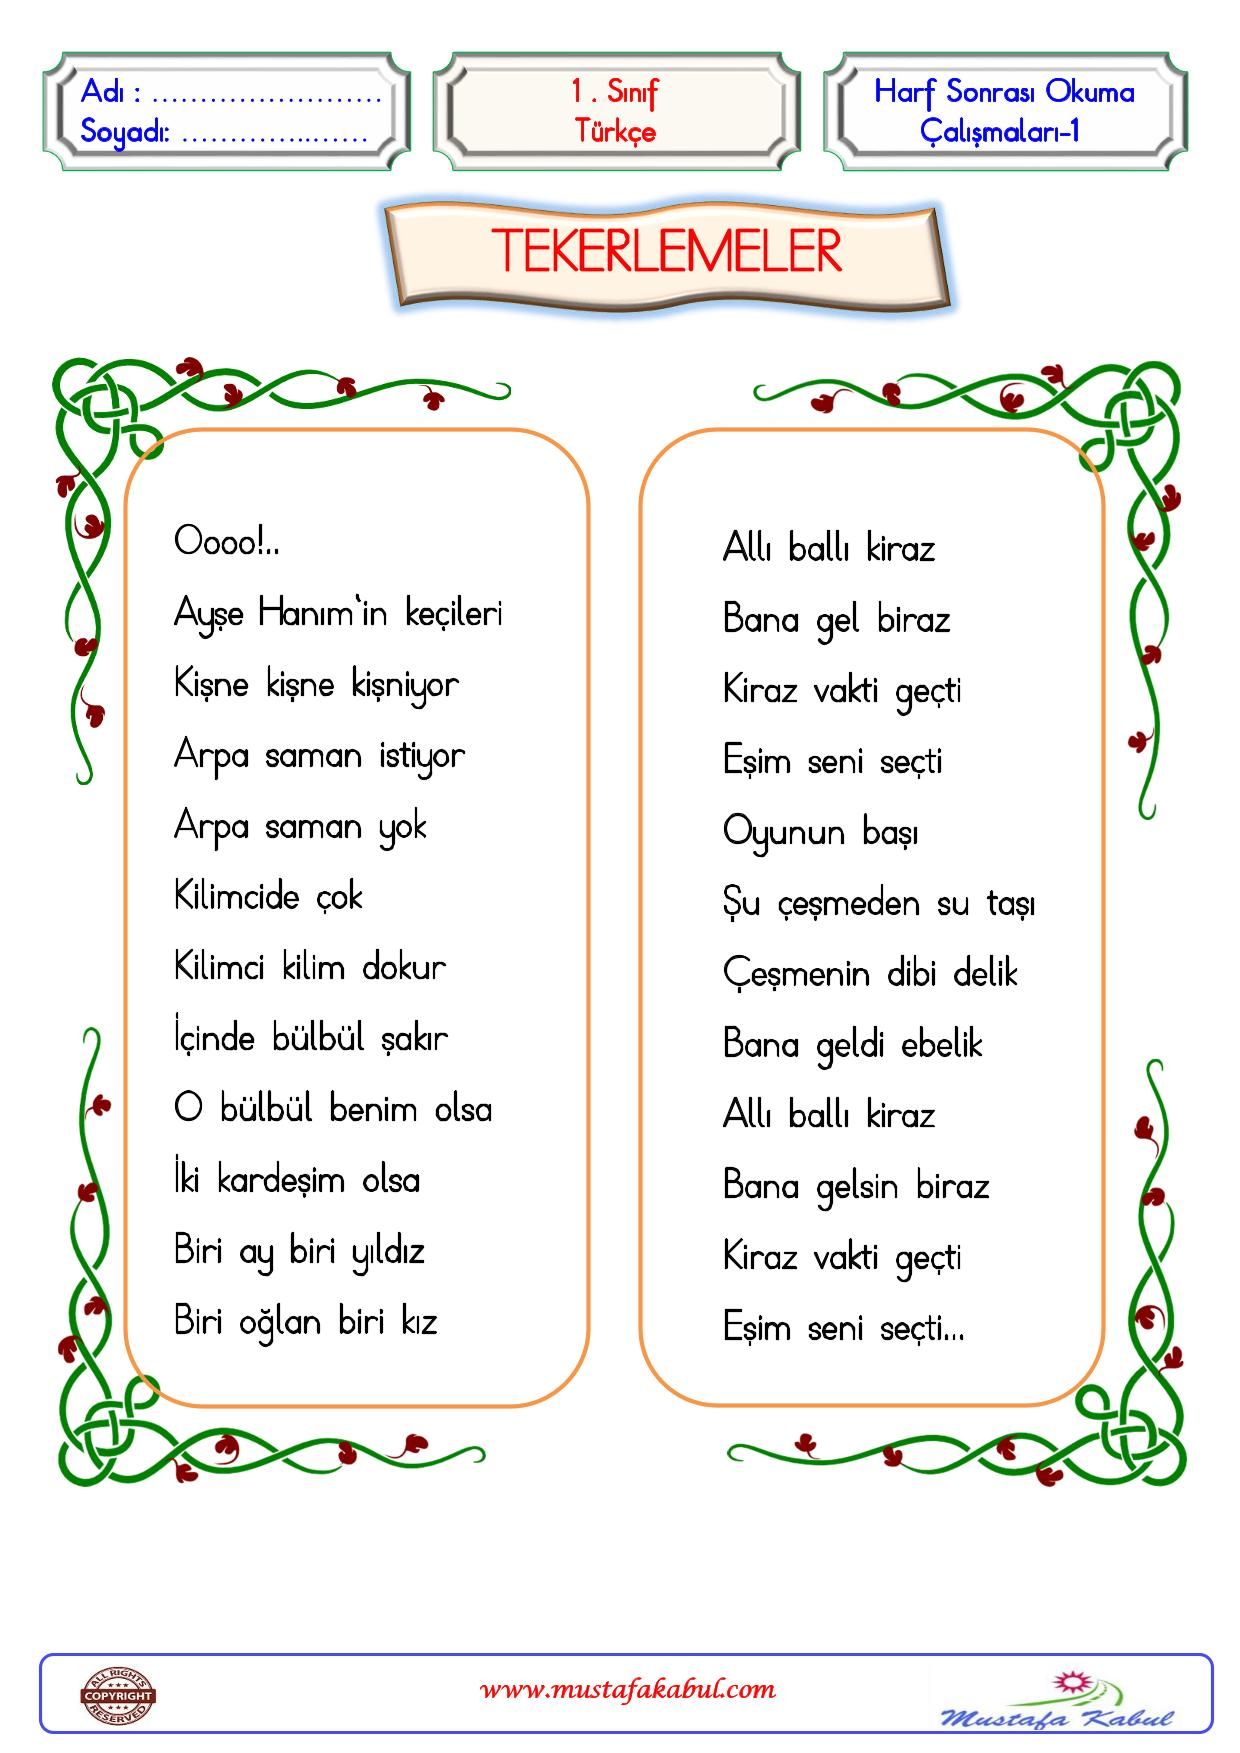 Adı : ……………………
Soyadı: …………...……
1 . Sınıf
Türkçe
Harf Sonrası Okuma
Çalışmaları-1
TEKERLEMELER
Oooo!..
Ayşe Hanım‘in keçileri
Kişne kişne kişniyor
Arpa saman istiyor
Arpa saman yok
Kilimcide çok
Kilimci kilim dokur
İçinde bülbül şakır
O bülbül benim olsa
İki kardeşim olsa
Biri ay biri yıldız
Biri oğlan biri kız
Allı ballı kiraz
Bana gel biraz
Kiraz vakti geçti
Eşim seni seçti
Oyunun başı
Şu çeşmeden su taşı
Çeşmenin dibi delik
Bana geldi ebelik
Allı ballı kiraz
Bana gelsin biraz
Kiraz vakti geçti
Eşim seni seçti...
ALL RIGHTS
COPYRIGHT
RESERVED
www.mustafakabul.com
Mustafa Kabul